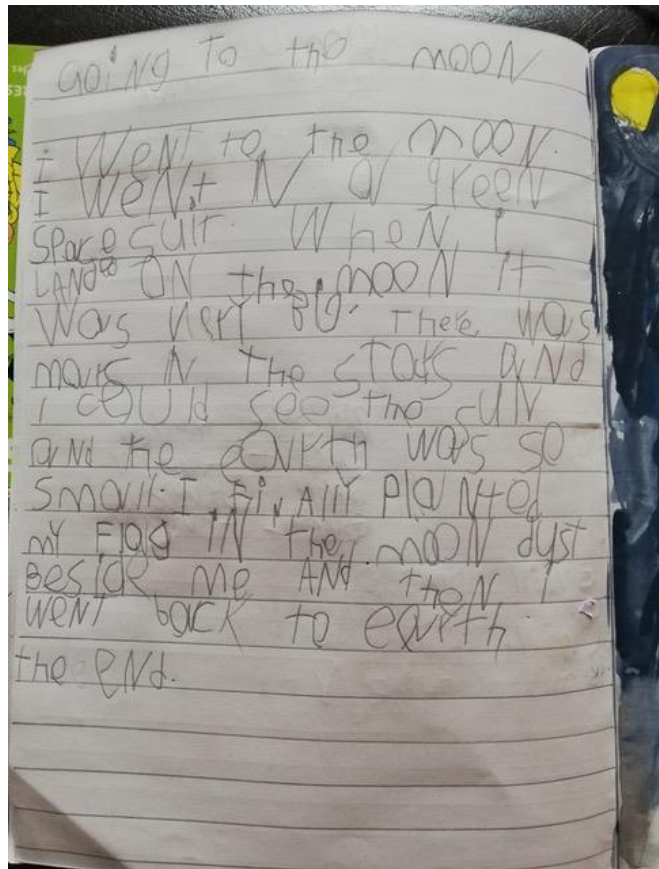 Going To the moon
i Went to the moon.
I went in a green
space suit. When i
LANded ON the moon it
was very BIG. There was
mars in the stars and
i could see the sun
and the earth was so
small. I finally planted
my Flag IN the moon dust
Beside me AND then I
went back to earth.
the end.